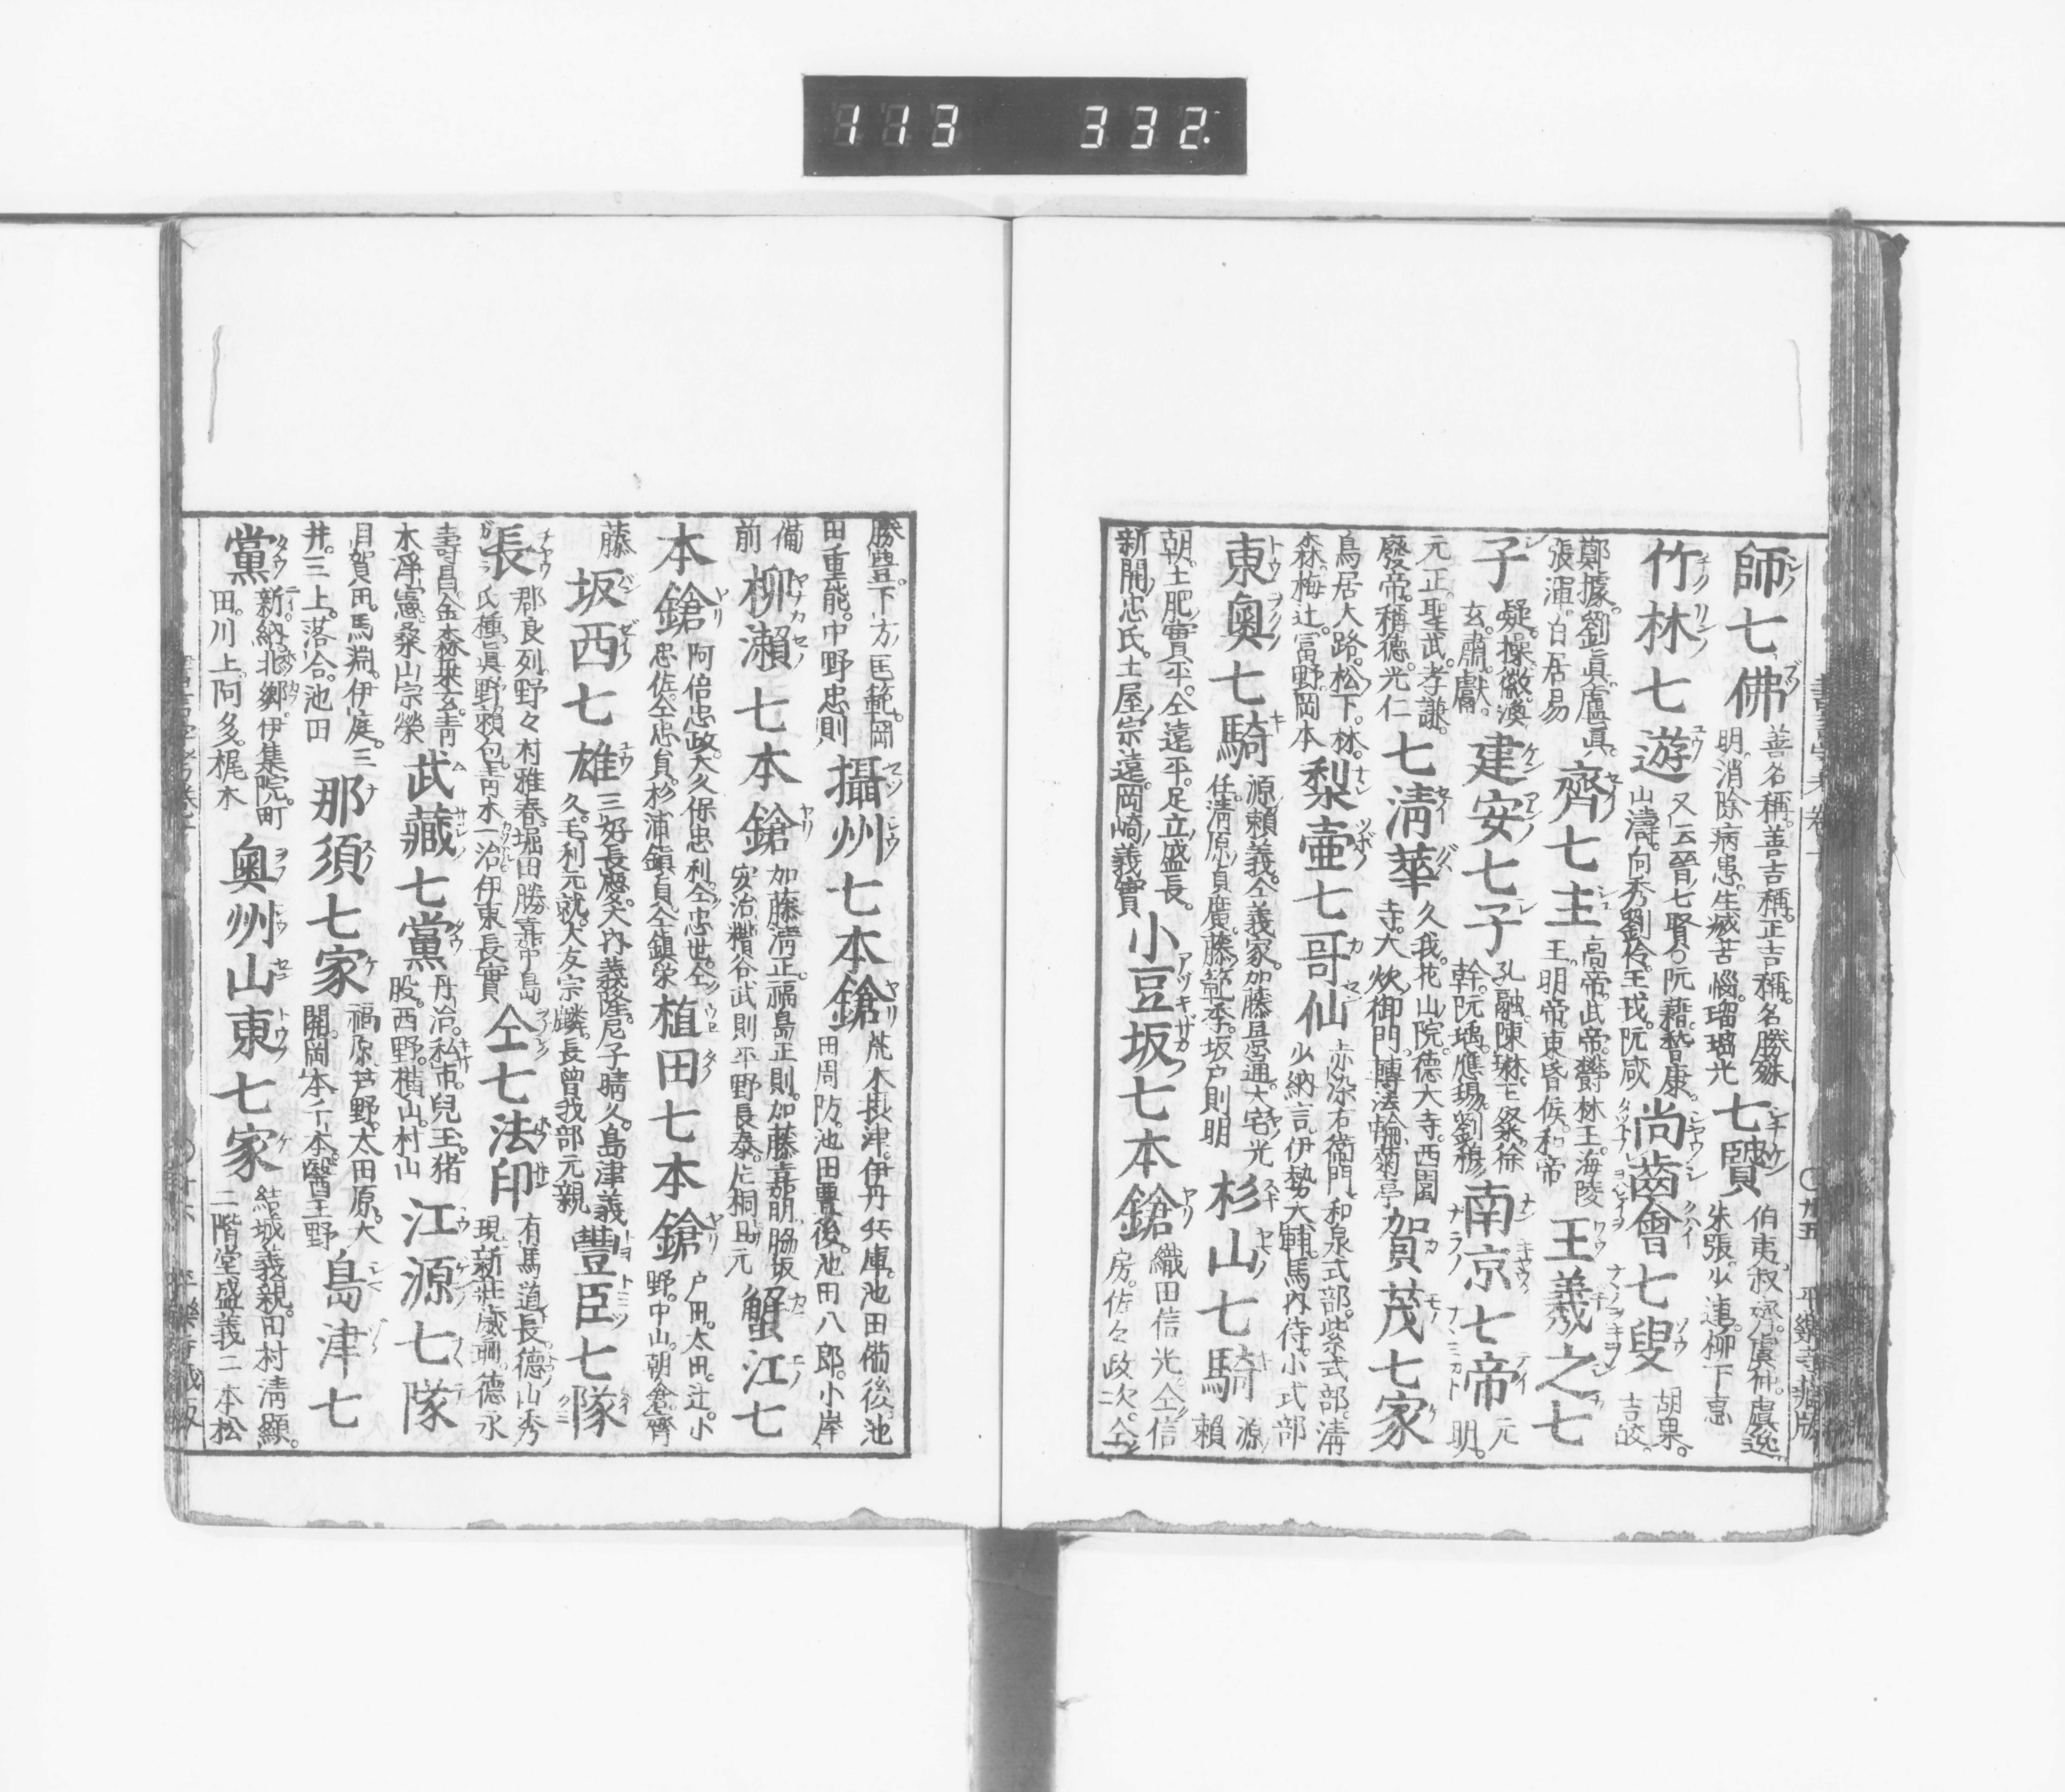 113 332.
師七佛 善名稱。善吉稱。正吉稱。名勝殊
明。消除病患。生滅苦惱。瑠璃光 七賢 伯夷。叔齊。虞仲。虞逸
朱張。少連。柳下惠
竹林七遊 又云晉七賢。阮籍。嵆康。
山濤。向秀。劉伶。王戎。阮咸 尚齒會七叟 胡杲。
吉皎。
鄭據。劉眞。盧眞。
張渾。白居易 齊七主 高帝。武帝。鬱林王。海陵
王。明帝。東昏侯。和帝 王羲之七
子 凝。操。徽。渙
玄。肅。獻。 建安七子 孔融。陳琳。王粲。徐
幹。阮瑀。應瑒。劉楨 南京七帝 元
明。
元正。聖武。孝謙。
廢帝。稱德。光仁 七淸華 久我。花山院。德大寺。西園
寺。大炊御門。轉法輪。菊亭 賀茂七家
鳥居大路。松下。林。
森。梅辻。富野。岡本 梨壷七哥仙 赤染右衞門。和泉式部。紫式部。淸
少納言。伊勢大輔。馬內侍。小式部
東奧七騎 源賴義。仝義家。加藤景通。大宅光
任。淸原貞廣。藤範季。坂戸則明 杉山七騎 源
賴
朝。土肥實平。仝遠平。足立盛長。
新開忠氏。土屋宗遠。岡崎義實 小豆坂七本鎗 織田信光。仝信
房。佐々政次。仝
勝豐。下方匡範。岡
田重能。中野忠則 攝州七本鎗 荒木長津。伊丹兵庫。池田備後。池
田周防。池田豐後。池田八郎。小岸
備
前 柳瀨七本鎗 加藤淸正。福島正則。加藤嘉明。脇坂
安治。糟谷武則。平野長泰。片桐且元 蟹江七
本鎗 阿倍忠政。大久保忠利。仝忠世。仝
忠佐。仝忠員。杉浦鎭貞。仝鎭栄 植田七本鎗 戸田。太田。辻。小
野。中山。朝倉。齊
藤 坂西七雄 三好長慶。大內義隆。尼子晴久。島津義
久。毛利元就。大友宗麟。長曾我部元親 豐臣七隊
長 郡良列。野々村雅春。堀田勝嘉。中島
氏種。眞野賴包。靑木一治。伊東長實 仝七法印 有馬道長。德山秀
現。新莊。德永
壽昌。金森。靑
木淨憲。桑山宗榮 武藏七黨 丹治。私市。兒玉。猪
股。西野。橫山。村山 江源七隊
目賀田。馬淵。伊庭。三
井。三上。落合。池田 那須七家 福原。芦野。太田原。大
關。岡本。千本。 島津七
黨 新納。北鄉。伊集院。町
田。川上。阿多。梶木 奧州山東七家 結城義親。田村淸顯。
二階堂盛義。二本松